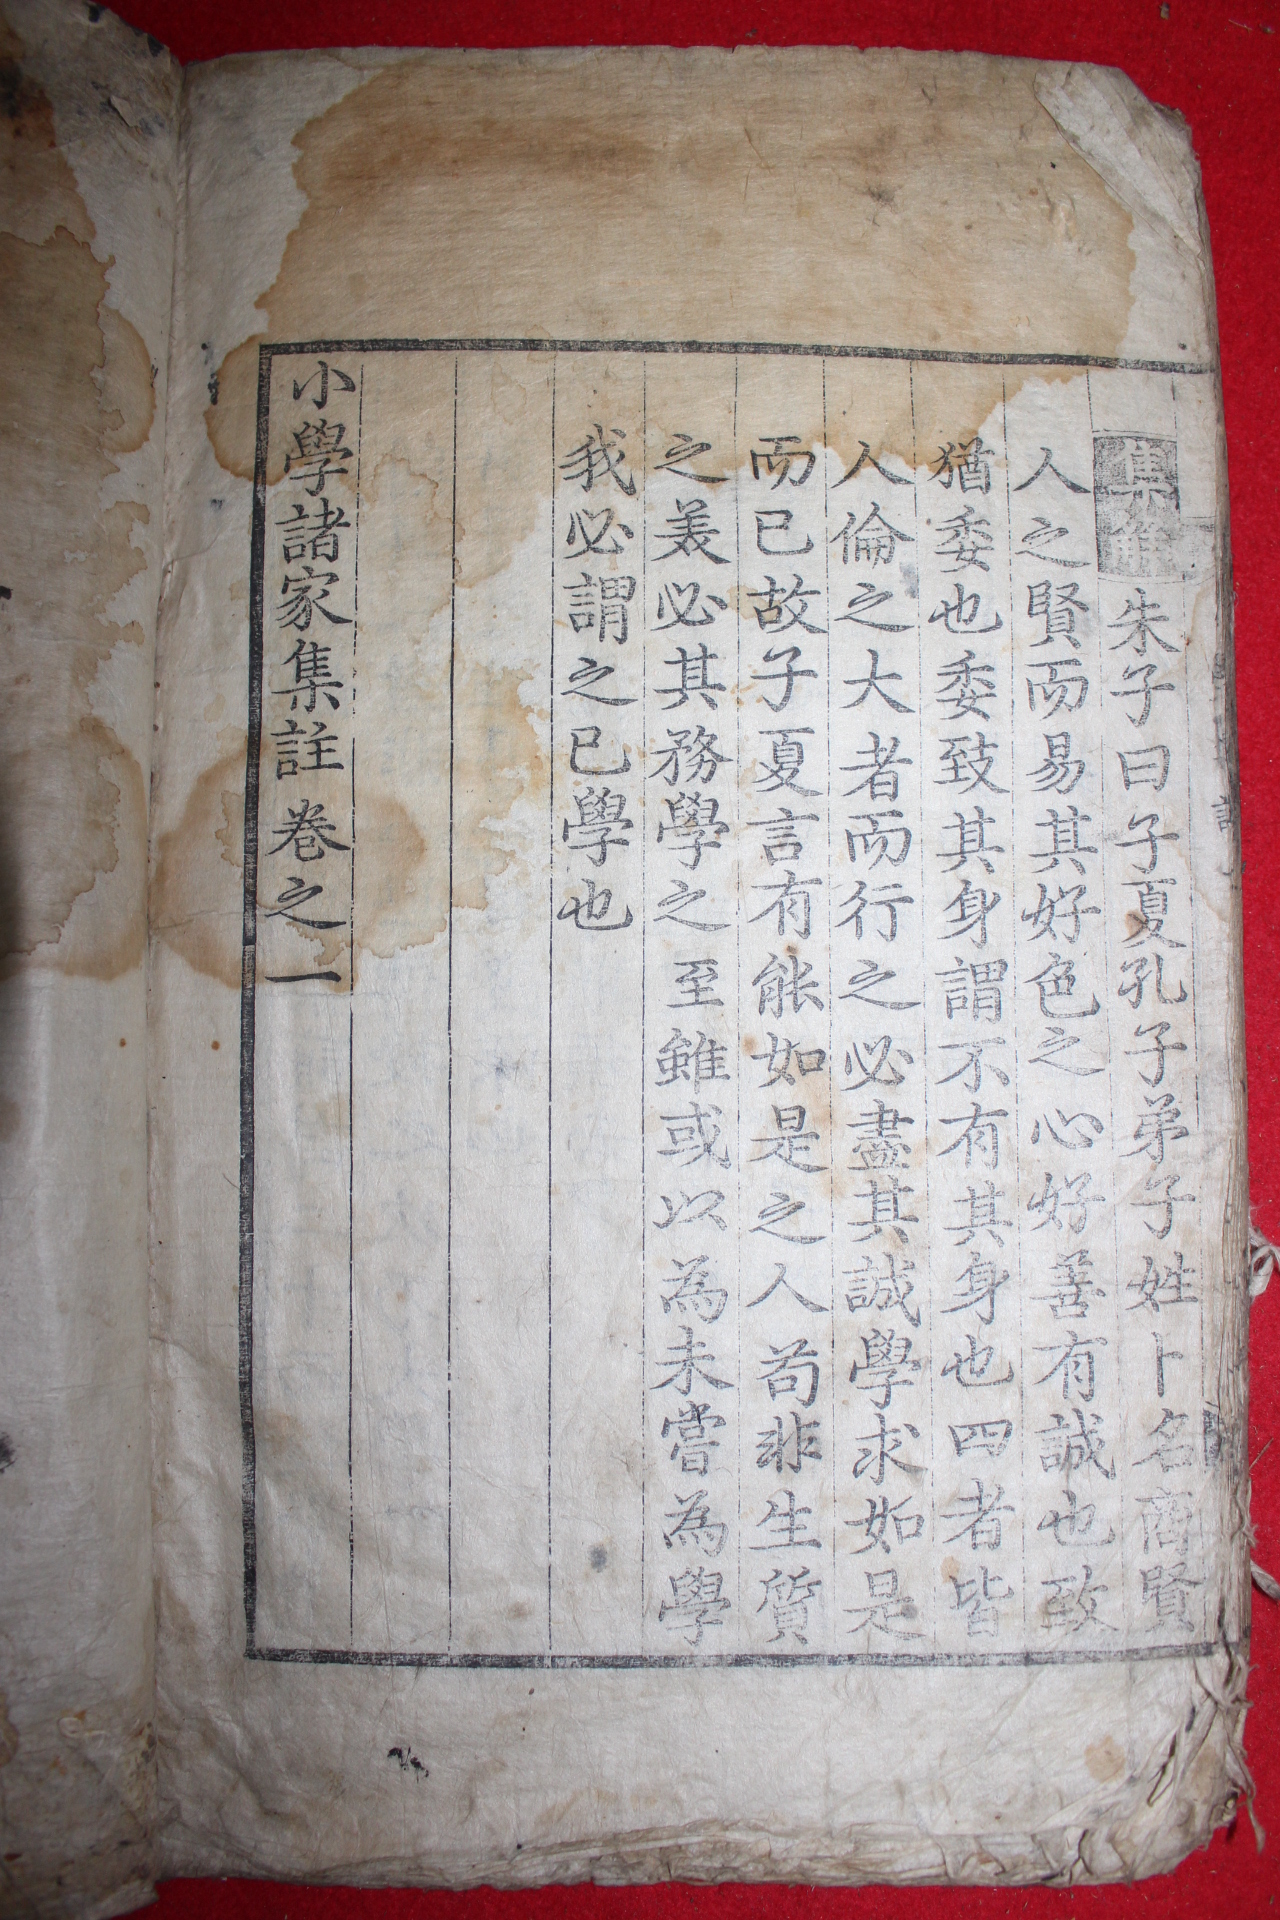 集解朱子曰子夏孔子弟子姓卜名商賢
人之賢而易其好色之心好善有誠也致
猶委也委致其身謂不有其身也四者皆
人倫之大者而行之必盡其誠學求如是
而已故子夏言有能如是之人苟非生質
之美必其務學之至雖或以為未嘗為學
我必謂之已學也
小學諸家集註卷之一